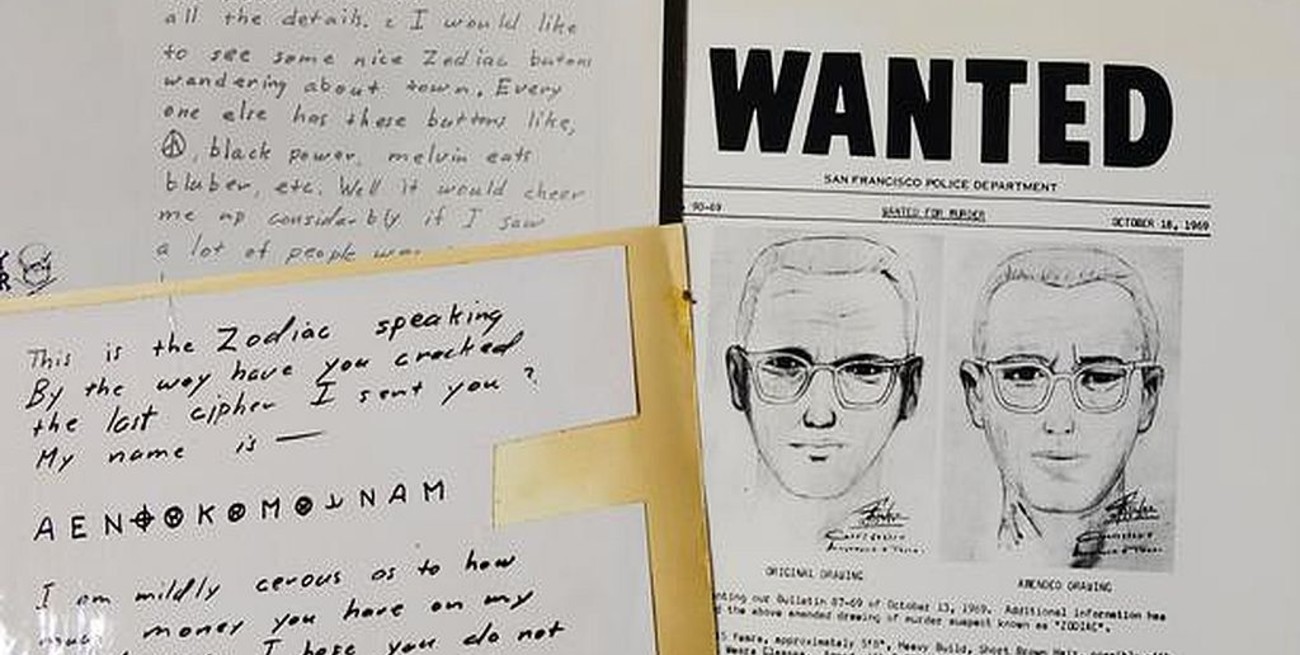 all the details. I would like
to see some nice Zodiac butons
wandering about town. Every
one else has these buttons like,
☮, black power, melvin eats
bluber, etc. Well it would cheer
me up considerbly if I saw
a lot of people
This is the Zodiac speaking
By the way have you cracked
the last cipher I sent you ?
My name is —
A E N ⌖ K M N A M
I am mildly cerous as to how
money you have on my
I hope you do not
WANTED
SAN FRANCISCO POLICE DEPARTMENT
90-69 WANTED FOR MURDER OCTOBER 18, 1969
ORIGINAL DRAWING AMENDED DRAWING
our Bulletin 87-69 of October 13, 1969. Additional information has
the above amended drawing of murder suspect known as "ZODIAC".
Years, approximately 5'8", Heavy Build, Short Brown Hair,
Wears Glasses.